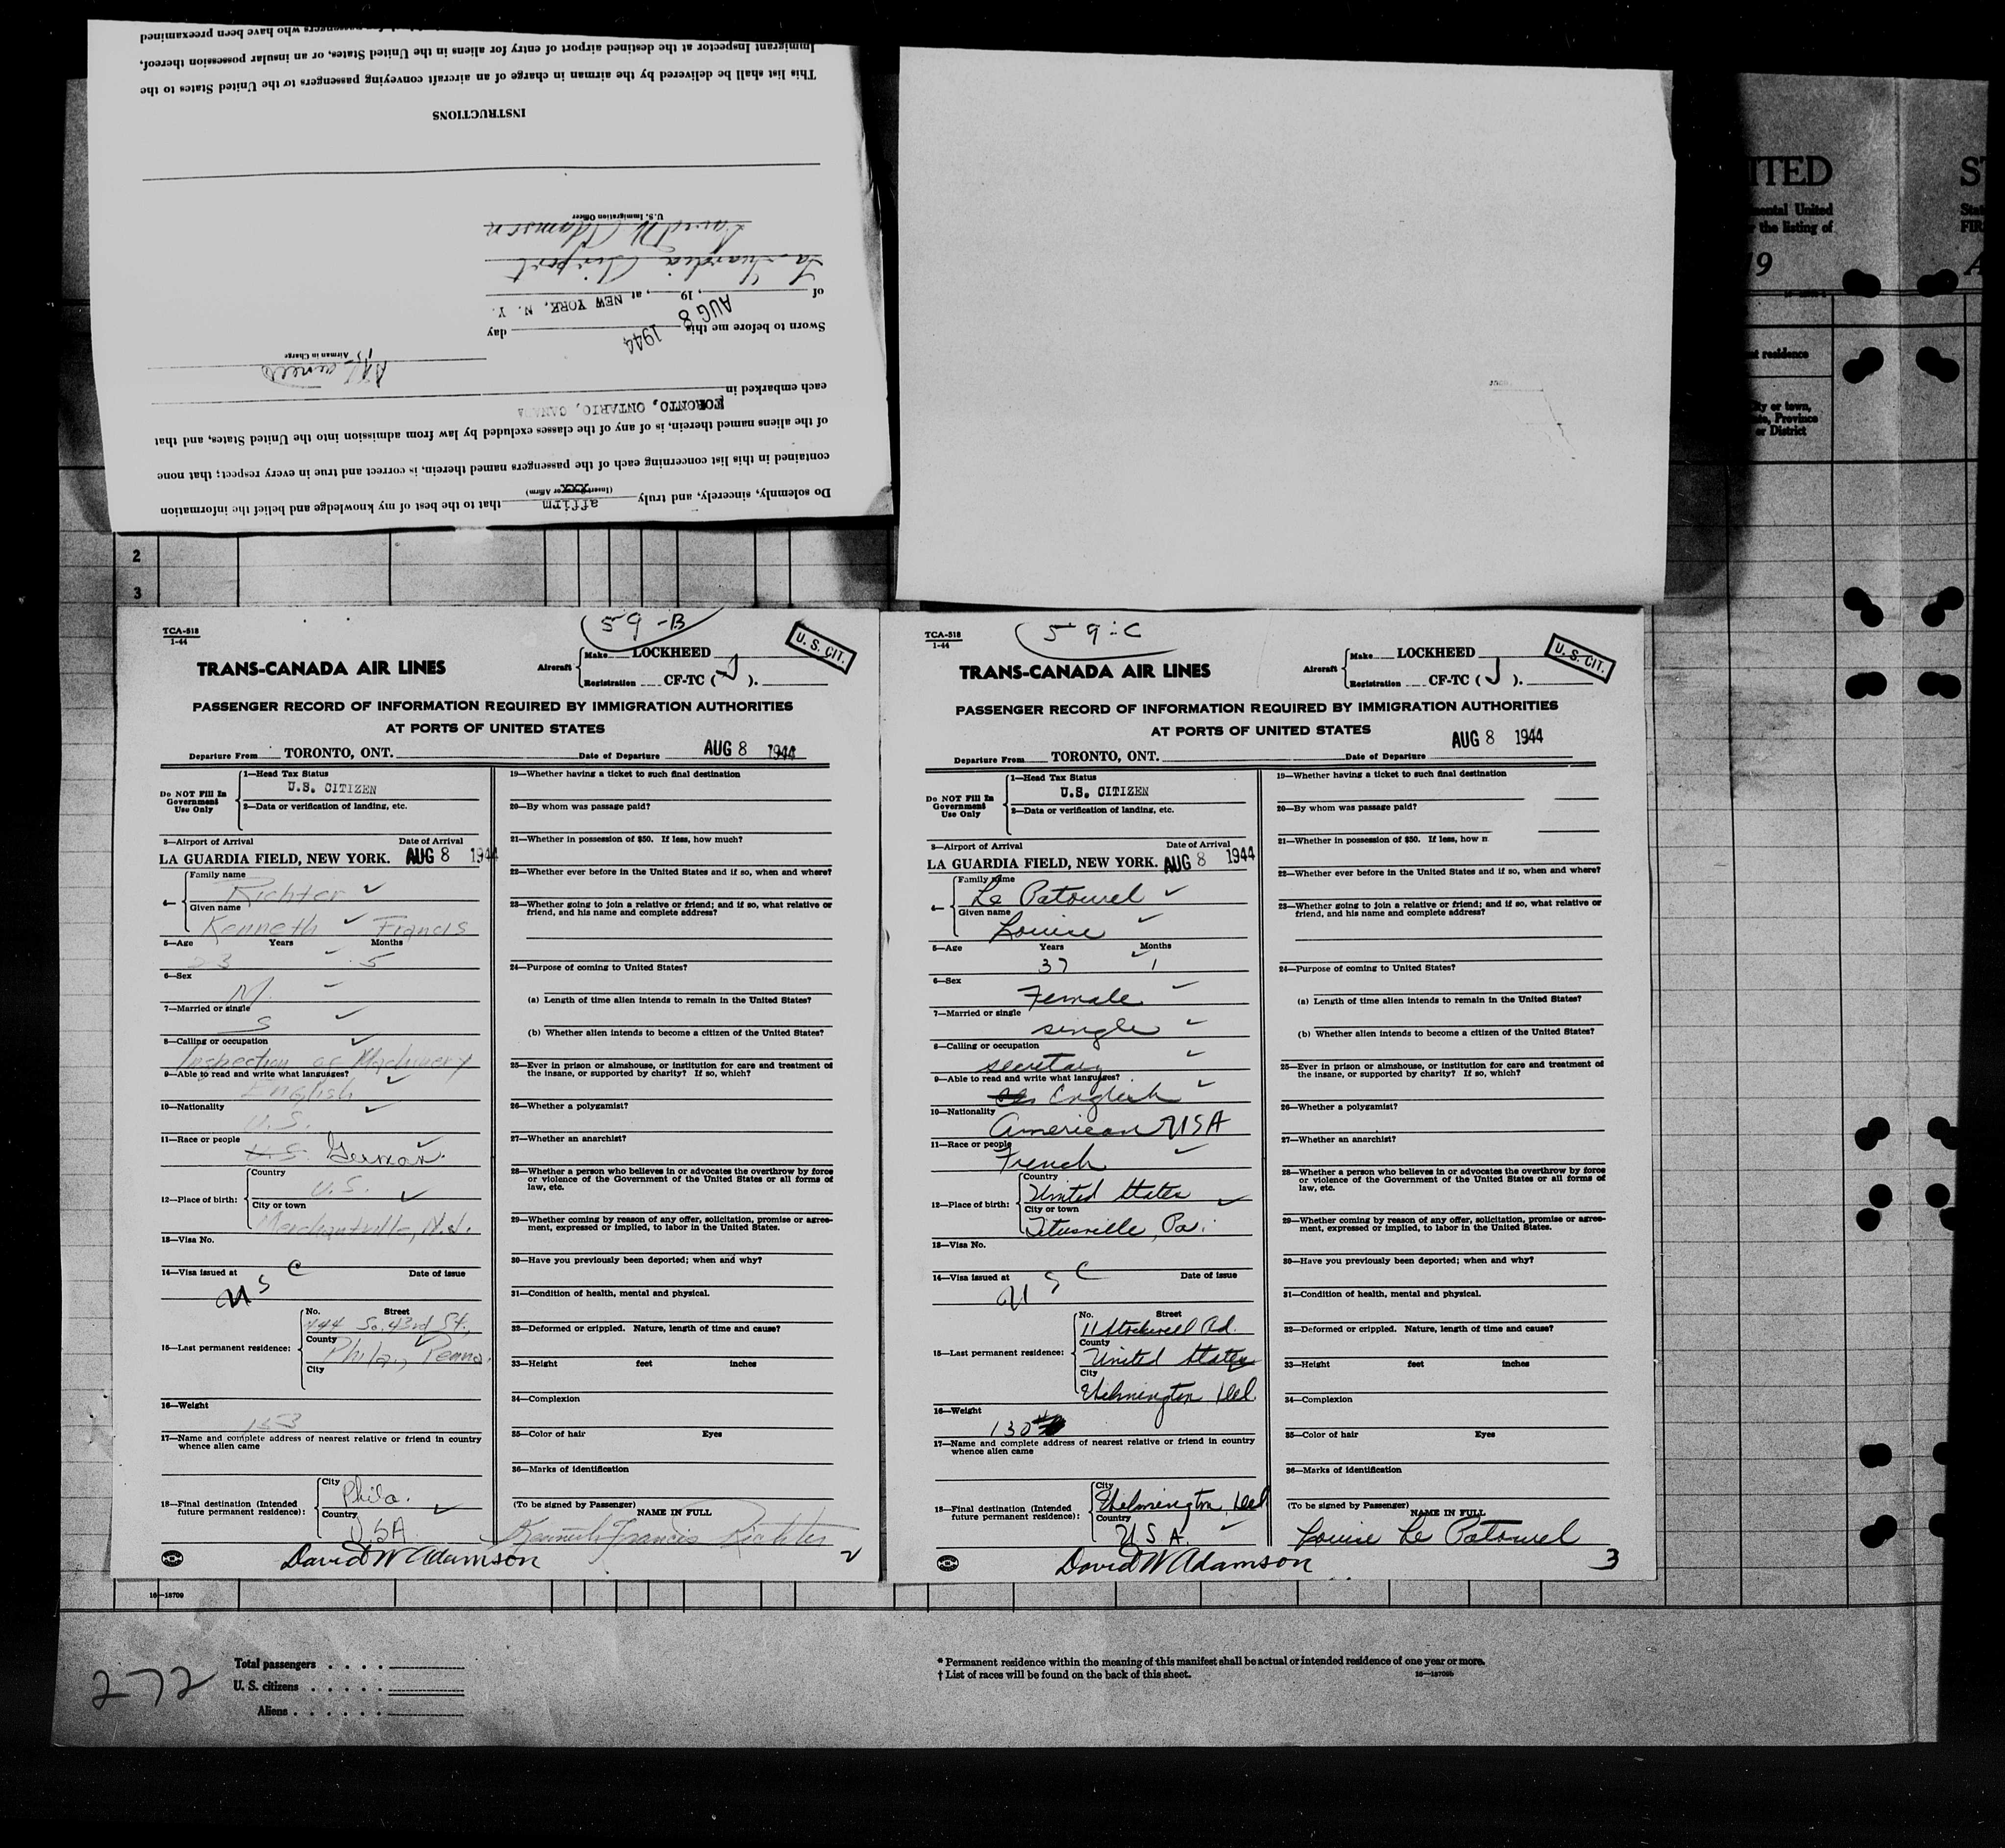 Immigrant Inspector at the destined airport of entry for aliens in the United States, or an insular possession thereof,
passengers who have been preexamined
This list shall be delivered by the airman in charge of an aircraft conveying passengers to the United States to the
INSTRUCTIONS
U. S. Immigration Officer
David W Adamson
La Guardia Airport
of , 19 , at NEW YORK, N. Y.
AUG 8 1944
Sworn to before me this day
Airman in Charge
each embarked in
TORONTO, ONTARIO, CANADA
of the aliens named therein, is of any of the classes excluded by law from admission into the United States, and that
contained in this list concerning each of the passengers named therein, is correct and true in every respect; that none
(Insert Swear or Affirm)
Do solemnly, sincerely, and truly affirm that to the best of my knowledge and belief the information
ITED
mental United
r the listing of
19
nt residence
ity or town,
te, Province
or District
ST
Stat
FIR
A
2
3
59-B
TCA-518
1-44
TRANS-CANADA AIR LINES
Aircraft
Make LOCKHEED
Registration CF-TC ( J ).
U. S. CIT.
PASSENGER RECORD OF INFORMATION REQUIRED BY IMMIGRATION AUTHORITIES
AT PORTS OF UNITED STATES
Departure From TORONTO, ONT. Date of Departure AUG 8 1944
Do NOT Fill In
Government
Use Only
1—Head Tax Status
U.S. CITIZEN
2—Data or verification of landing, etc.
3—Airport of Arrival Date of Arrival
LA GUARDIA FIELD, NEW YORK. AUG 8 1944
4—
Family name
Richter
Given name
Kenneth Francis
5—Age Years Months
23 5
6—Sex
M.
7—Married or single
S
8—Calling or occupation
Inspection of Machinery
9—Able to read and write what languages?
English
10—Nationality
U.S.
11—Race or people
U.S. German.
12—Place of birth:
Country
U.S.
City or town
Merchantville, N.J.
13—Visa No.
14—Visa issued at Date of issue
U S C
15—Last permanent residence:
No. Street
444 So. 43rd St.
County
Phila., Penna.
City
16—Weight
153
17—Name and complete address of nearest relative or friend in country
whence alien came
18—Final destination (Intended
future permanent residence):
City
Phila.
Country
USA
19—Whether having a ticket to such final destination
20—By whom was passage paid?
21—Whether in possession of $50. If less, how much?
22—Whether ever before in the United States and if so, when and where?
23—Whether going to join a relative or friend; and if so, what relative or
friend, and his name and complete address?
24—Purpose of coming to United States?
(a) Length of time alien intends to remain in the United States?
(b) Whether alien intends to become a citizen of the United States?
25—Ever in prison or almshouse, or institution for care and treatment of
the insane, or supported by charity? If so, which?
26—Whether a polygamist?
27—Whether an anarchist?
28—Whether a person who believes in or advocates the overthrow by force
or violence of the Government of the United States or all forms of
law, etc.
29—Whether coming by reason of any offer, solicitation, promise or agree-
ment, expressed or implied, to labor in the United States.
30—Have you previously been deported; when and why?
31—Condition of health, mental and physical.
32—Deformed or crippled. Nature, length of time and cause?
33—Height feet inches
34—Complexion
35—Color of hair Eyes
36—Marks of identification
(To be signed by Passenger)
NAME IN FULL
Kenneth Francis Richter
David W Adamson
2
59-C
TCA-518
1-44
TRANS-CANADA AIR LINES
Aircraft
Make LOCKHEED
Registration CF-TC ( J ).
U. S. CIT.
PASSENGER RECORD OF INFORMATION REQUIRED BY IMMIGRATION AUTHORITIES
AT PORTS OF UNITED STATES
Departure From TORONTO, ONT. Date of Departure AUG 8 1944
Do NOT Fill In
Government
Use Only
1—Head Tax Status
U.S. CITIZEN
2—Data or verification of landing, etc.
3—Airport of Arrival Date of Arrival
LA GUARDIA FIELD, NEW YORK. AUG 8 1944
4—
Family name
Le Patourel
Given name
Louise
5—Age Years Months
37 1
6—Sex
Female
7—Married or single
single
8—Calling or occupation
secretary
9—Able to read and write what languages?
English
10—Nationality
American USA
11—Race or people
French
12—Place of birth:
Country
United States
City or town
Titusville, Pa.
13—Visa No.
14—Visa issued at Date of issue
U S C
15—Last permanent residence:
No. Street
11 Stockwell Rd.
County
United States
City
Wilmington Del
16—Weight
130
17—Name and complete address of nearest relative or friend in country
whence alien came
18—Final destination (Intended
future permanent residence):
City
Wilmington, Del
Country
USA.
19—Whether having a ticket to such final destination
20—By whom was passage paid?
21—Whether in possession of $50. If less, how m
22—Whether ever before in the United States and if so, when and where?
23—Whether going to join a relative or friend; and if so, what relative or
friend, and his name and complete address?
24—Purpose of coming to United States?
(a) Length of time alien intends to remain in the United States?
(b) Whether alien intends to become a citizen of the United States?
25—Ever in prison or almshouse, or institution for care and treatment of
the insane, or supported by charity? If so, which?
26—Whether a polygamist?
27—Whether an anarchist?
28—Whether a person who believes in or advocates the overthrow by force
or violence of the Government of the United States or all forms of
law, etc.
29—Whether coming by reason of any offer, solicitation, promise or agree-
ment, expressed or implied, to labor in the United States.
30—Have you previously been deported; when and why?
31—Condition of health, mental and physical.
32—Deformed or crippled. Nature, length of time and cause?
33—Height feet inches
34—Complexion
35—Color of hair Eyes
36—Marks of identification
(To be signed by Passenger)
NAME IN FULL
Louise Le Patourel
David W Adamson
3
16—18709
272
Total passengers . . . .
U. S. citizens . . . . .
Aliens . . . . . .
* Permanent residence within the meaning of this manifest shall be actual or intended residence of one year or more.
† List of races will be found on the back of this sheet.
16—18709b